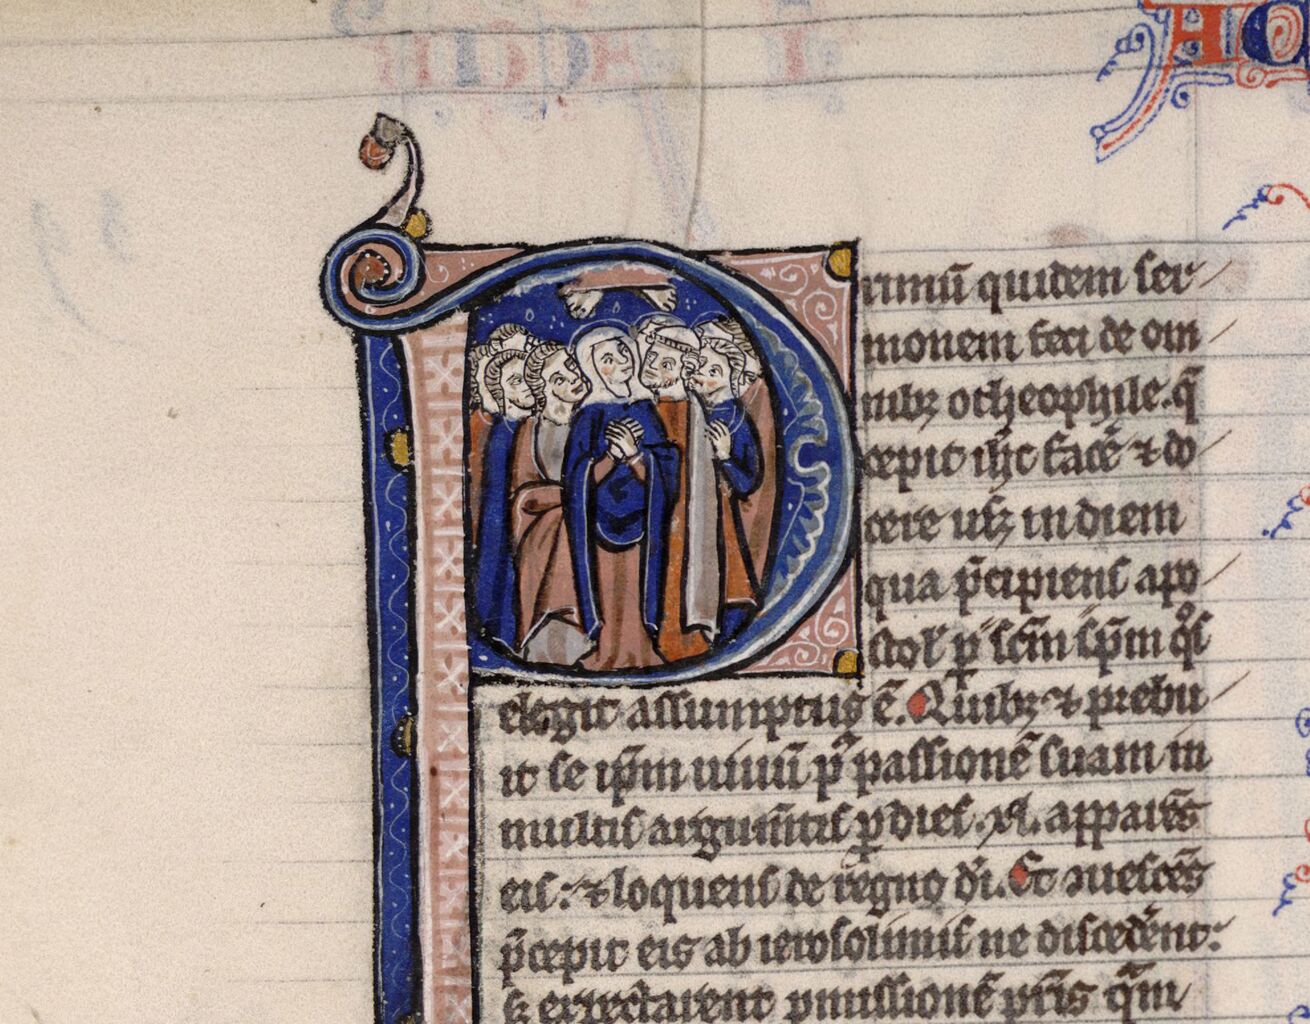 AC
Primū quidem ser
monem feci de om
nibꝫ o theophile. q̄
cepit ihc̄ facē ⁊ do
cere usꝫ in diem
qua p̄cipiens apo
stol' ꝑ sc̄m sp̄m q°s
elegit assumptus ē. Quibꝫ ⁊ prebu
it se ip̄m uiuū p̄ passionē suam in
multis argum̄tis ꝑ dies .xl. apparēs
eis: ⁊ loquens de regno di̅. Et cuescēs
p̄cepit eis ab ierosolimis ne discedēnt:
sꝫ expectarent pmissionē pr̄is q̄m